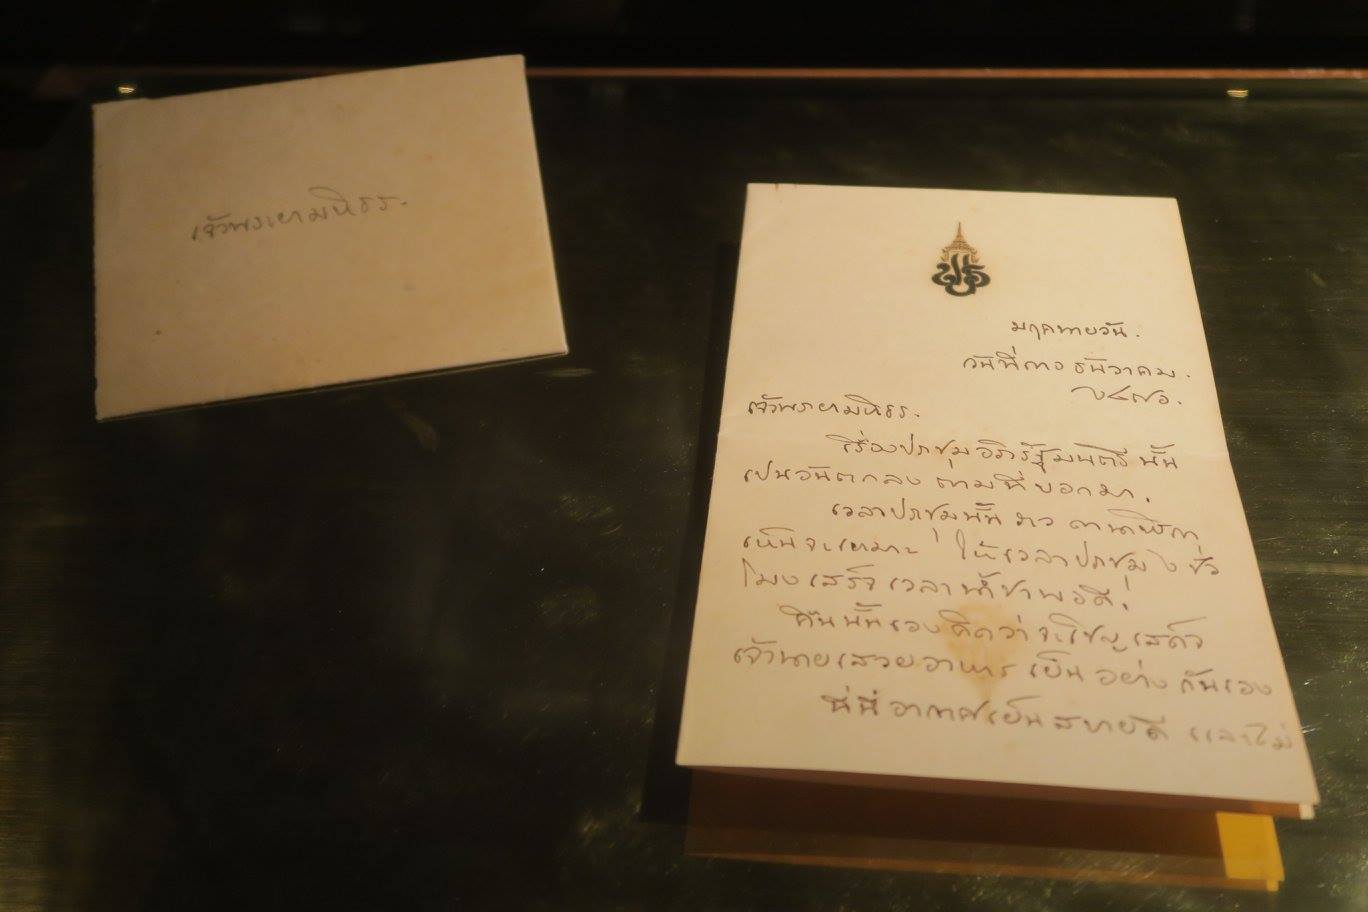 เจ้าพระยามหิธร.
มฤคทายวัน.
วันที่ ธันวาคม.
๒๔๗๖.
เจ้าพระยามหิธร.
เรื่องประชุมอภิรัฐมนตรี นั้น
เปนอันตกลง ตามที่บอกมา.
เวลาประชุมนั้น ราว
เห็นจะเหมาะ ให้เวลาประชุม ๑ ชั่ว
โมง เสร็จเวลาน้ำชาพอดี.
คืนนั้นเองคิดว่าจะเชิญเสด็จ
เจ้านายเสวยอาหาร เย็น อย่าง กันเอง
ที่นี่อากาศเย็นสบายดี และไม่